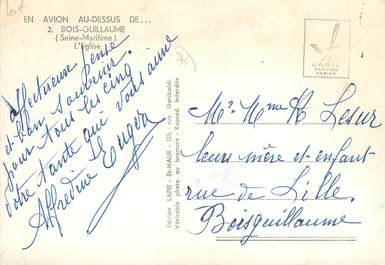 EN AVION AU-DESSUS DE...
2. BOIS-GUILLAUME
(Seine-Maritime)
L'Église
affectueuse pensée
et bon souvenir
pour tous les cinq
votre tante qui vous aime
Alfredine
Edition LAPIE - St-MAUR - 125, rue Garibaldi
Véritable photo au bromure - Reprod. Interdite
LAPIE
SERVICE
AERIEN
Mr Mme K Lesur
leurs mère et enfant
rue de Lille
Boisguillaume